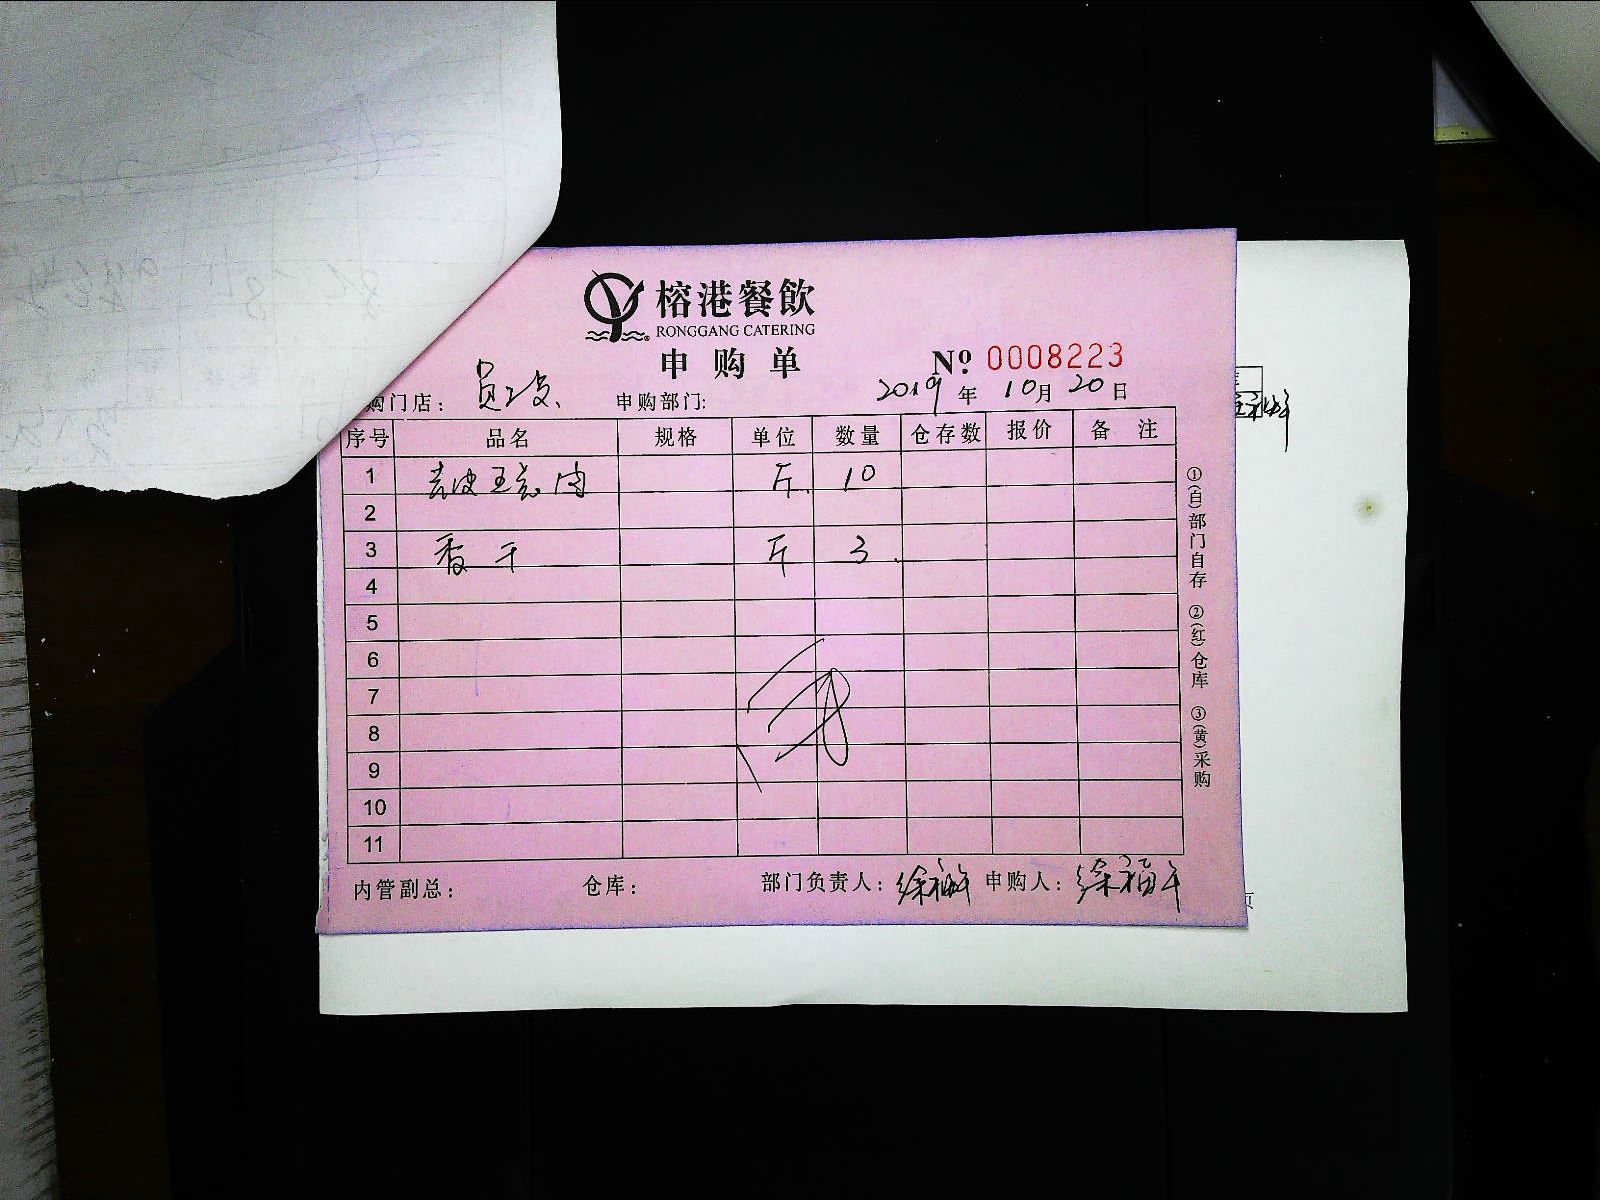 榕港餐飲
RONGGANG CATERING
申购单
№ 0008223
购门店： 员工 申购部门: 2019年10月20日
序号 品名 规格 单位 数量 仓存数 报价 备注
1 肉 斤 10
2
3 香干 斤 3
4
5
6
7
8
9
10
11
内管副总： 仓库： 部门负责人： 徐福 申购人： 徐福
①(白)部门自存 ②(红)仓库 ③(黄)采购
页